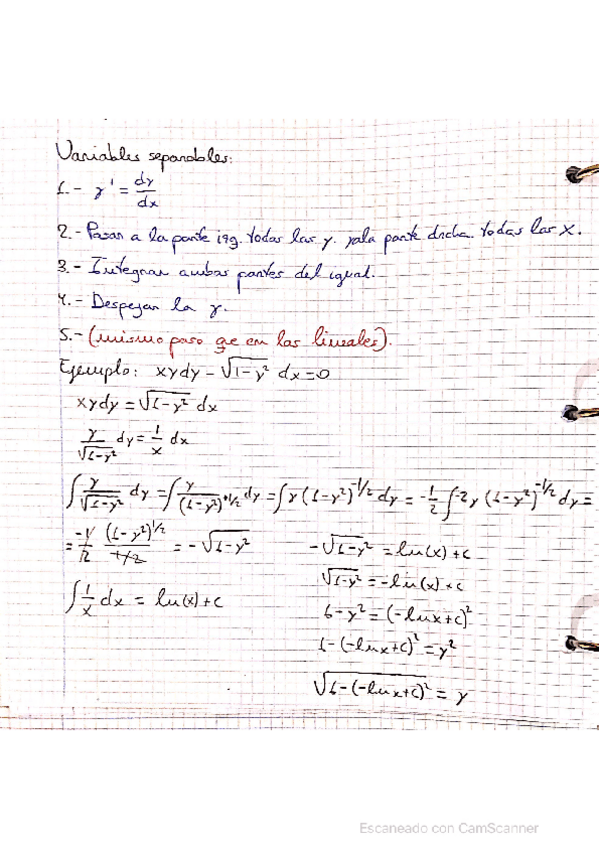 Variables separables:
1.- y' = dy/dx
2.- Pasar a la parte izq. todas las y. y a la parte drcha. todas las x.
3.- Integrar ambas partes del igual.
4.- Despejar la y.
5.- (mismo paso qe en las lineales).
Ejemplo: xydy - √(1-y²) dx = 0
xydy = √(1-y²) dx
y/√(1-y²) dy = 1/x dx
∫ y/√(1-y²) dy = ∫ y/(1-y²)^(+1/2) dy = ∫ y (1-y²)^(-1/2) dy = -1/2 ∫ -2y (1-y²)^(-1/2) dy =
= -1/2 (1-y²)^(1/2)/(1/2) = -√(1-y²)
∫ 1/x dx = ln(x)+c
-√(1-y²) = ln(x)+c
√(1-y²) = -ln(x)+c
1-y² = (-lnx+c)²
1-(-lnx+c)² = y²
√(1-(-lnx+c)²) = y
Escaneado con CamScanner